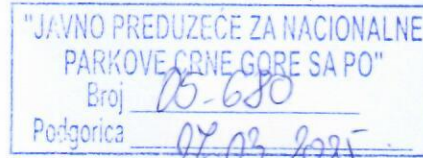 "JAVNO PREDUZEĆE ZA NACIONALNE
PARKOVE CRNE GORE SA PO"
Broj 05-680
Podgorica 07.03 2025